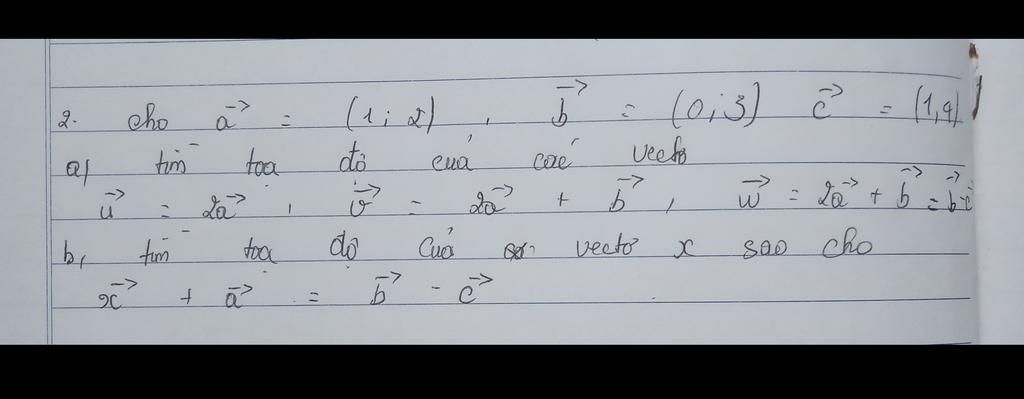 2. cho a→ = (1; 2), b→ = (0; 3) c→ = (1,4)
a) tìm toạ độ củả các vectơ
u→ = 2a→, v→ = 2a→ + b→, w→ = 2a→ + b→ = b→ - c→
b, tìm toạ độ của vectơ x sao cho
x→ + a→ = b→ - c→